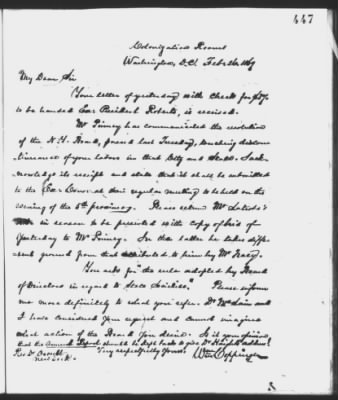 447
Colonization Rooms
Washington, D.C. Feb. 1869
My Dear Sir
Your letter of yesterday with check for $
to be handed Ex. President Roberts, is received.
Mr Pinney has communicated the resolution
of the N.Y. Board, passed last Tuesday, touching discon-
tinuance of your labors in that City and State. I ack-
nowledge its receipt and state that it shall be submitted
to the Ex. Com. at their regular meeting to be held on the
evening of the 5th proximo. Please return Mr
in season to be presented with copy of
yesterday to Mr Pinney. In that letter he takes diffe-
rent ground from that attributed to him by Mr Tracy.
You ask for "the rule adopted by Board
of Directors in regard to State Societies." Please inform
me more definitely to what you refer. Dr McLain and
I have considered your request and cannot imagine
what action of the Board you desire. Is it your opinion
that the Annual Report should be kept back to give Dr address?
Very respectfully Yours,
Wm Coppinger
Rev. Dr Orcutt
New York.